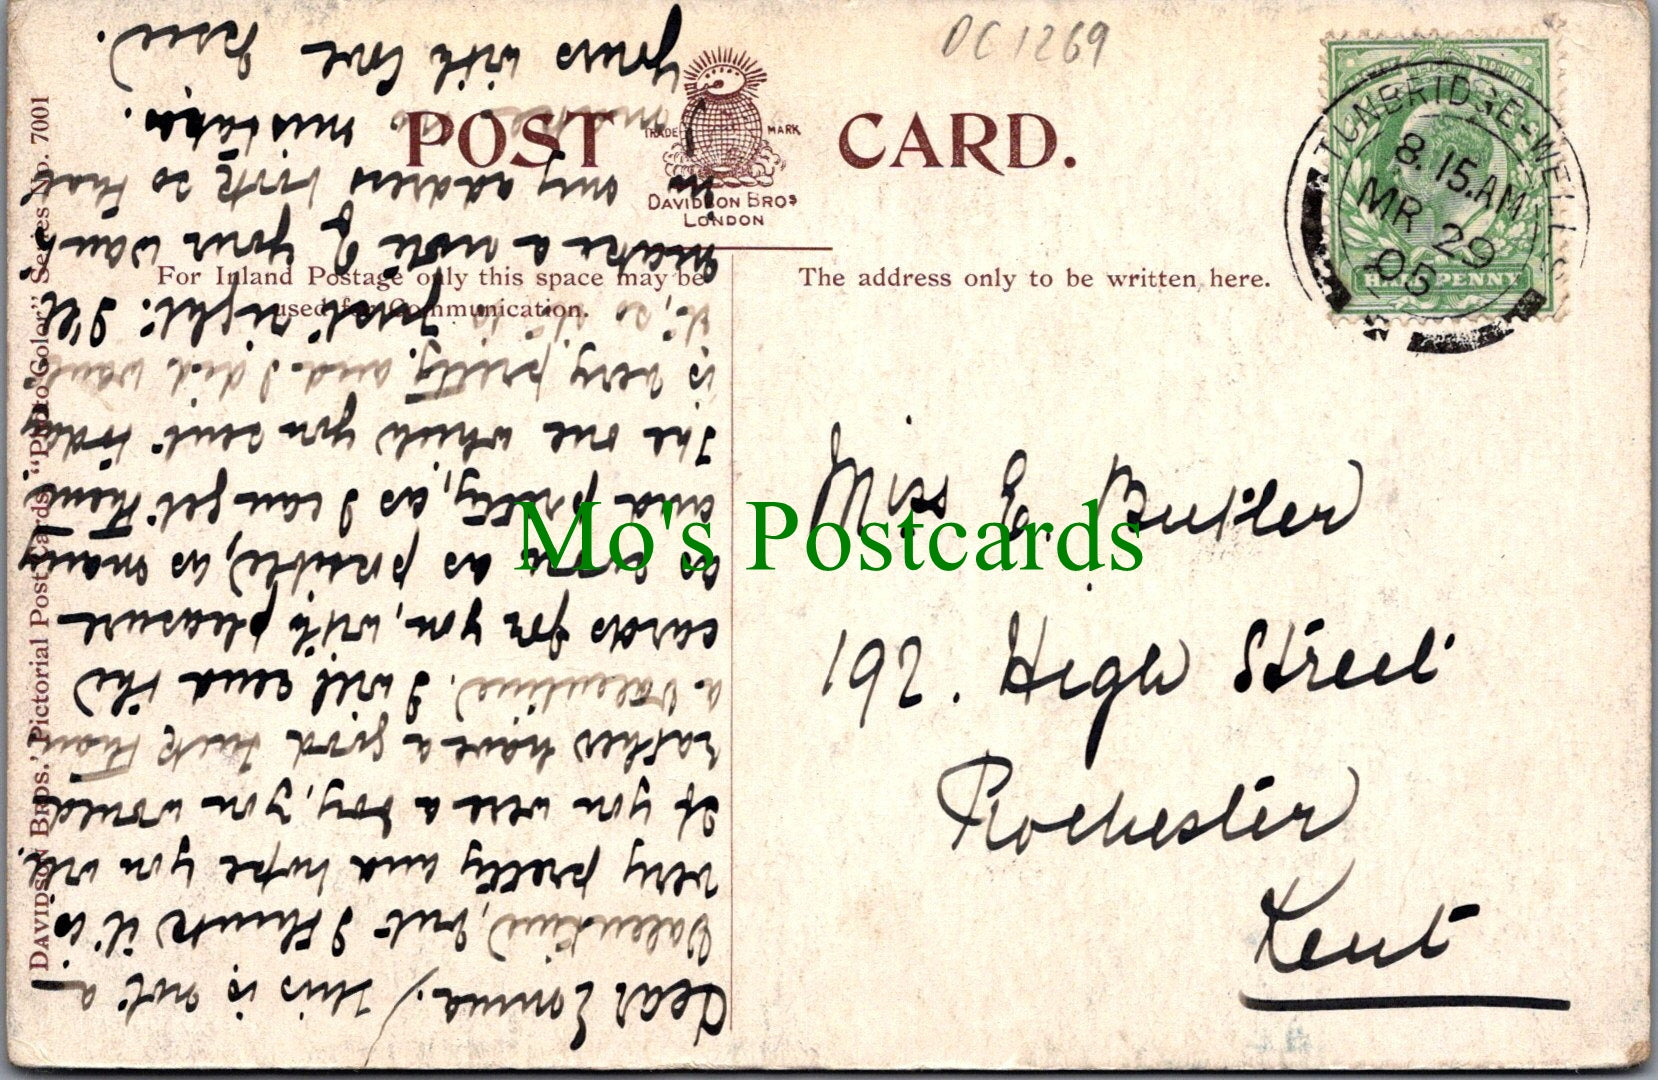 DC1269
POST CARD.
TRADE MARK
DAVIDSON BROS
LONDON
For Inland Postage only this space may be
used for Communication.
The address only to be written here.
DAVIDSON BROS.' Pictorial Post Cards, "Photo Color" Series No. 7001
TUNBRIDGE-WELLS
8.15.AM
MR 29
05
POSTAGE & REVENUE
HALFPENNY
Miss E. Butler
192. High Street
Rochester
Kent
Mo's Postcards
Dear Emma, This is not a
Valentine, but I think it is
very pretty and hope you will.
If you were a boy, you would
rather have a good than
a Valentine. I will send the
cards for you, with pleasure
as soon as possible, as many
and pretty, as I can get them.
The one which you sent today
is very pretty, and I did want
it, so it is just right. I'll
make a note of your want
in my address book so that
makes no mistakes.
Yours with love